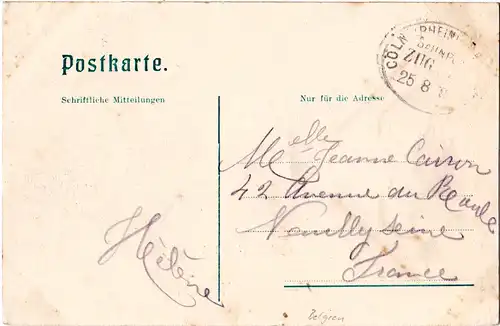 Postkarte.
Schriftliche Mitteilungen
Nur für die Adresse
CÖLN
ZUG
25 8
Melle Jeanne Cairon
42 Avenue du Roule
Neuilly seine
France
Hélène
Belgien